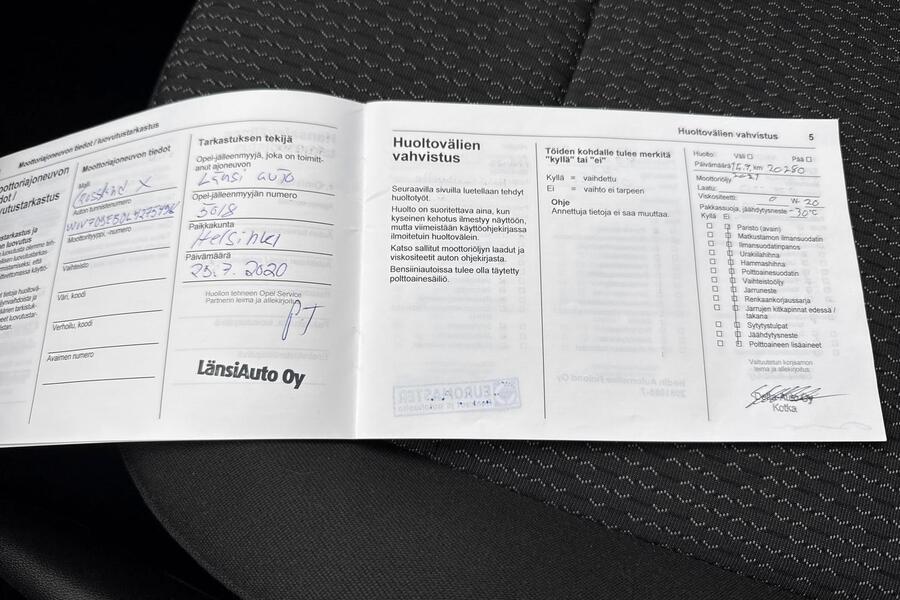 Moottoriajoneuvon tiedot / luovutustarkastus
Moottoriajoneuvon tiedot
Malli
Crossland X
Auton tunnistenumero
Moottorityyppi, -numero
Vaihteisto
Väri, koodi
Verhoilu, koodi
Avaimen numero
Tarkastuksen tekijä
Opel-jälleenmyyjä, joka on toimitt-
anut ajoneuvon
Länsi auto
Opel-jälleenmyyjän numero
5018
Paikkakunta
Helsinki
Päivämäärä
23.7.2020
Huollon tehneen Opel Service
Partnerin leima ja allekirjoitus
PJ
LänsiAuto Oy
Huoltovälien
vahvistus
Seuraavilla sivuilla luetellaan tehdyt
huoltotyöt.
Huolto on suoritettava aina, kun
kyseinen kehotus ilmestyy näyttöön,
mutta viimeistään käyttöohjekirjassa
ilmoitetuin huoltovälein.
Katso sallitut moottoriöljyn laadut ja
viskositeetit auton ohjekirjasta.
Bensiiniautoissa tulee olla täytetty
polttoainesäiliö.
EUROMASTER
Töiden kohdalle tulee merkitä
"kyllä" tai "ei"
Kyllä = vaihdettu
Ei = vaihto ei tarpeen
Ohje
Annettuja tietoja ei saa muuttaa.
Huoltovälien vahvistus 5
Huolto: Väli Pää
Päivämäärä 15.7. km 20280
Moottoriöljy 2021
Laatu:
Viskositeetti: 0 W- 20
Pakkassuoja, jäähdytysneste -30°C
Kyllä Ei
Paristo (avain)
Matkustamon ilmansuodatin
Ilmansuodatinpanos
Urakiilahihna
Hammashihna
Polttoainesuodatin
Vaihteistoöljy
Jarruneste
Renkaankorjaussarja
Jarrujen kitkapinnat edessä /
takana
Sytytystulpat
Jäähdytysneste
Polttoaineen lisäaineet
Valtuutetun korjaamon
leima ja allekirjoitus:
Delta Auto Oy
Kotka